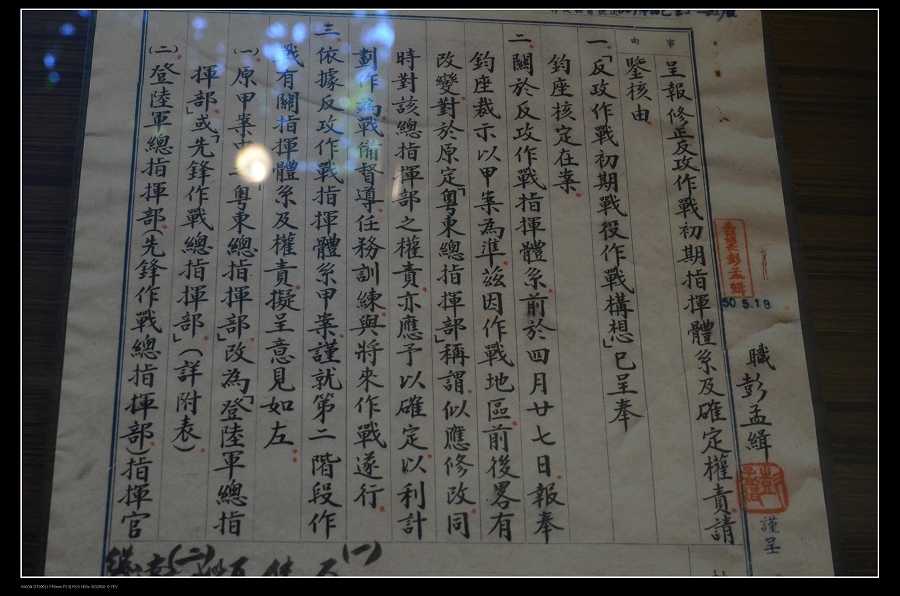 職彭孟緝謹呈
50 5.18
事由
呈報修正反攻作戰初期指揮體系及確定權責請
鑒核由
一、「反攻作戰初期戰役作戰構想」已呈奉
鈞座核定在案
二、關於反攻作戰指揮體系前於四月廿七日報奉
鈞座裁示以甲案為準茲因作戰地區前後畧有
改變對於原定「粵東總指揮部」稱謂似應修改同
時對該總指揮部之權責亦應予以確定以利計
劃作為戰備督導任務訓練與將來作戰遂行
三、依據反攻作戰指揮體系甲案謹就第二階段作
戰有關指揮體系及權責擬呈意見如左
㈠原甲案中「粵東總指揮部」改為「登陸軍總指
揮部」或「先鋒作戰總指揮部」(詳附表)
㈡登陸軍總指揮部(先鋒作戰總指揮部)指揮官